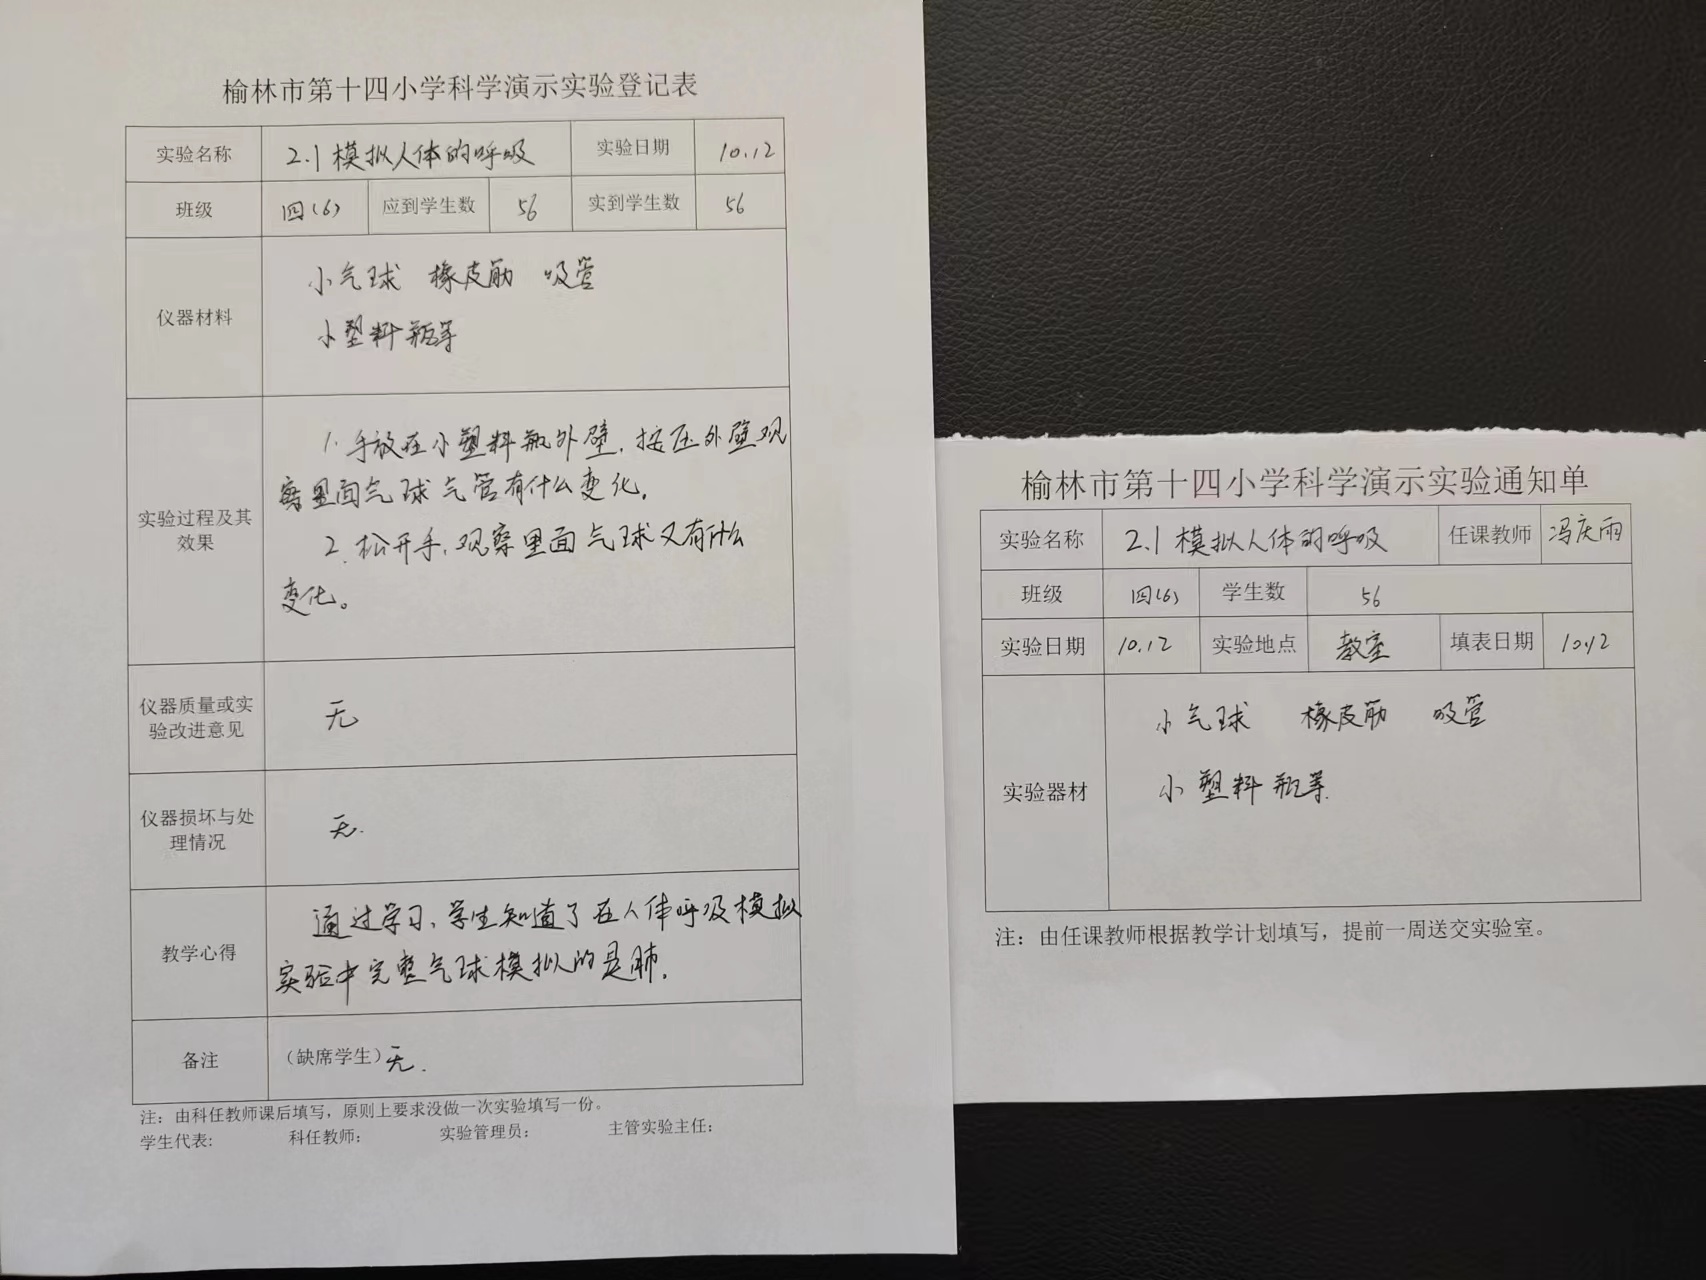 榆林市第十四小学科学演示实验登记表
实验名称 2.1 模拟人体的呼吸 实验日期 10.12
班级 四(6) 应到学生数 56 实到学生数 56
仪器材料
小气球 橡皮筋 吸管
小塑料瓶等
实验过程及其
效果
1. 手放在小塑料瓶外壁，按压外壁观
察里面气球气管有什么变化。
2. 松开手，观察里面气球又有什么
变化。
仪器质量或实
验改进意见
无
仪器损坏与处
理情况
无.
教学心得
通过学习，学生知道了在人体呼吸模拟
实验中完整气球模拟的是肺.
备注 （缺席学生）无.
注：由科任教师课后填写，原则上要求没做一次实验填写一份。
学生代表: 科任教师: 实验管理员: 主管实验主任:
榆林市第十四小学科学演示实验通知单
实验名称 2.1 模拟人体的呼吸 任课教师 冯庆雨
班级 四(6) 学生数 56
实验日期 10.12 实验地点 教室 填表日期 10.12
实验器材
小气球 橡皮筋 吸管
小塑料瓶等.
注：由任课教师根据教学计划填写，提前一周送交实验室。